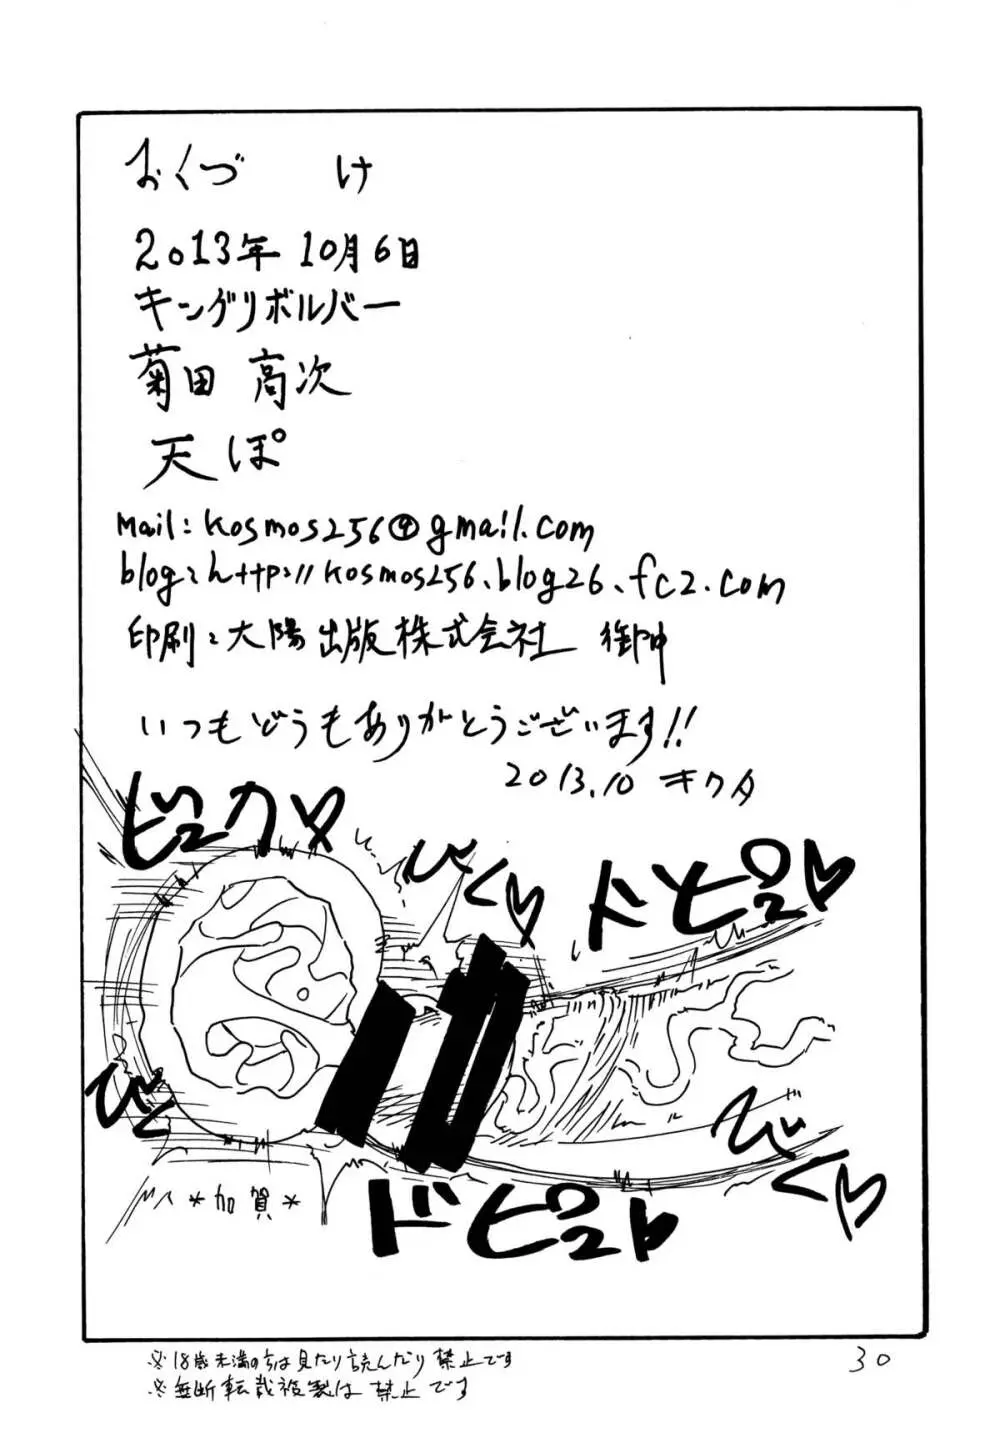 おくづけ
2013年10月6日
キングリボルバー
菊田 高次
天ぽ
Mail: kosmos256@gmail.com
blog: http://kosmos256.blog26.fc2.com
印刷: 大陽出版株式会社 御中
いつもどうもありがとうございます!!
2013.10 キクタ
ビュカッ♡
びくっ♡
ドピュッ♡
びく
びくっ♡
ドピュッ♡
*加賀*
※18歳未満の方は見たり読んだり禁止です
※無断転載複製は禁止です
30